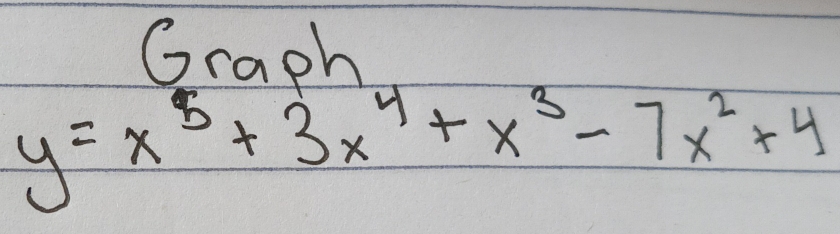 Graph
y = x⁵ + 3x⁴ + x³ - 7x² + 4